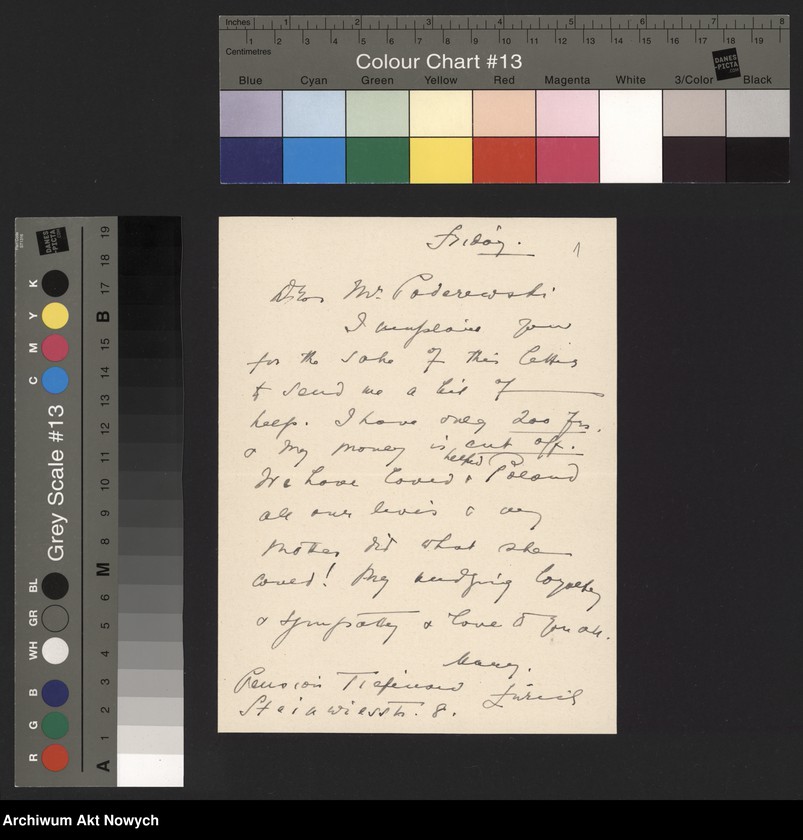 Inches 1 2 3 4 5 6 7 8
1 2 3 4 5 6 7 8 9 10 11 12 13 14 15 16 17 18 19
Centimetres
Colour Chart #13
DANES
-PICTA
.COM
Blue Cyan Green Yellow Red Magenta White 3/Color Black
Grey Scale #13
DANES
-PICTA
.COM
R G B WH GR BL C M Y K
A 1 2 3 4 5 6 M 8 9 10 11 12 13 14 15 B 17 18 19
Friday. 1
Dear Mr. Paderewski
I implore you
for the sake of this letter
to send me a bit of
help. I have only 200 frs.
& my money is cut off.
We have loved & helped Poland
all our lives & my
mother did what she
could! My undying loyalty
& sympathy & love to you all.
Pension Tiefenau Zürich
Steinwiesstr. 8.
Archiwum Akt Nowych